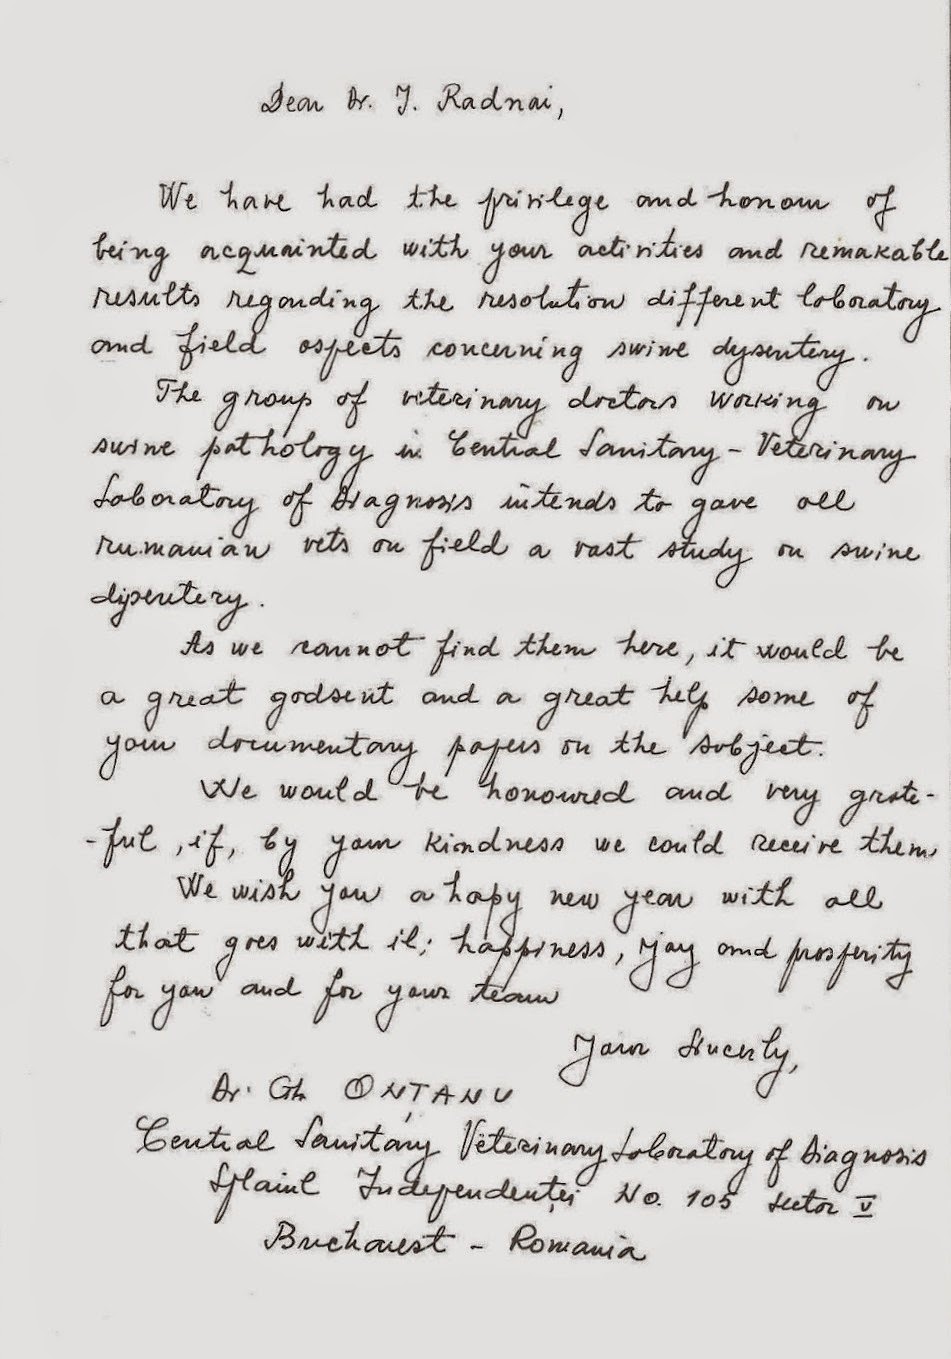 Dear Dr. I. Radnai,
We have had the privilege and honour of
being acquainted with your activities and remakable
results regarding the resolution different laboratory
and field aspects concerning swine dysentery.
The group of veterinary doctors working on
swine pathology in Central Sanitary - Veterinary
Laboratory of Diagnosis intends to gave all
rumanian vets on field a vast study on swine
dysentery.
As we cannot find them here, it would be
a great godsent and a great help some of
your documentary papers on the subject.
We would be honoured and very grate-
-ful, if, by your kindness we could receive them
We wish you a hapy new year with all
that goes with it: happiness, yoy and prosperity
for you and for your team
Your Sincerly,
Dr. Gh ONȚANU
Central Sanitary Veterinary Laboratory of Diagnosis
Splaiul Independenței No. 105 sector V
Bucharest - Romania